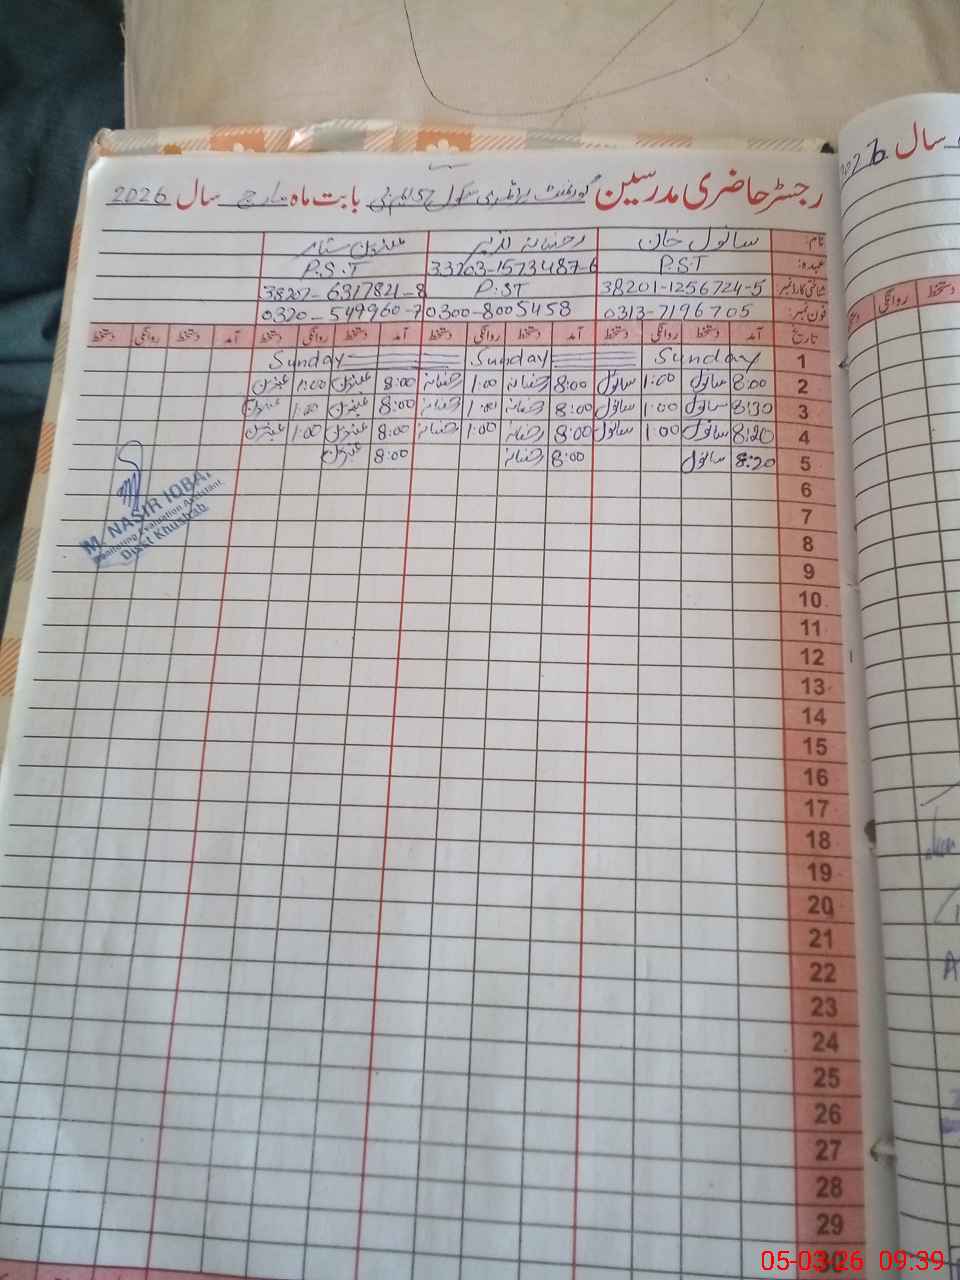 رجسٹر حاضری مدرسین گورنمنٹ پرائمری سکول بابت ماہ مارچ سال 2026
نام: سانول خان رحسانہ
عہدہ: P.ST 33203-1573487-6 P.S.T
شناختی کارڈ نمبر 38201-1256724-5 P.ST 38202-6317821-8
فون نمبر: 0313-7196705 0300-8005458 0320-549960-7
تاریخ آمد دستخط روانگی دستخط آمد دستخط روانگی دستخط آمد دستخط روانگی دستخط آمد دستخط روانگی دستخط
1 Sunday Sunday Sunday
2 8:00 سانول 1:00 سانول 8:00 رحسانہ 1:00 رحسانہ 8:00 عنبرین 1:00 عنبرین
3 8:30 سانول 1:00 سانول 8:00 رحسانہ 1:00 رحسانہ 8:00 عنبرین 1:00 عنبرین
4 8:20 سانول 1:00 سانول 8:00 رحسانہ 1:00 رحسانہ 8:00 عنبرین 1:00 عنبرین
5 8:20 سانول 8:00 رحسانہ 8:00 عنبرین
6
7
8
9
10
11
12
13
14
15
16
17
18
19
20
21
22
23
24
25
26
27
28
29
30
M. NASIR IQBA
Monitoring Evaluation Assistant
Distt Khushab
سال
روانگی دستخط
05-03-26 09:39